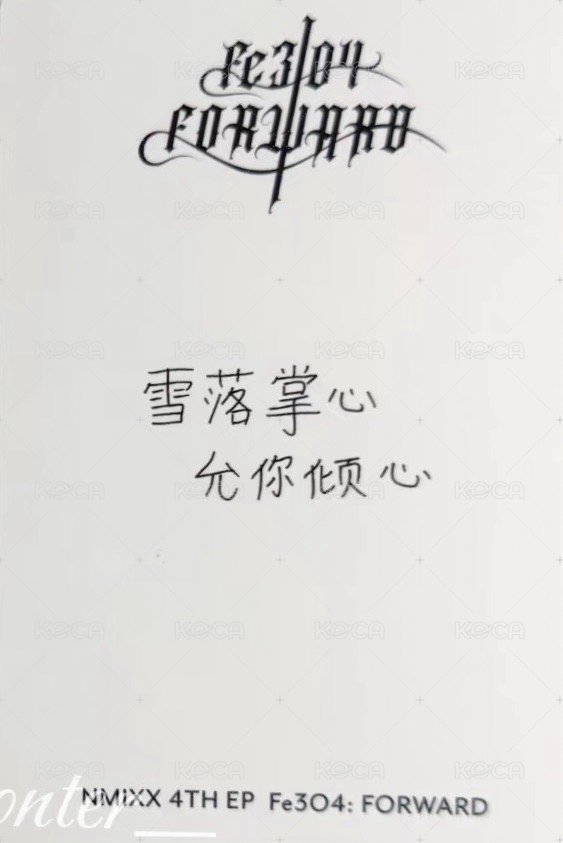 Fe3O4
FORWARD
雪落掌心
允你倾心
NMIXX 4TH EP Fe3O4: FORWARD
KOCA